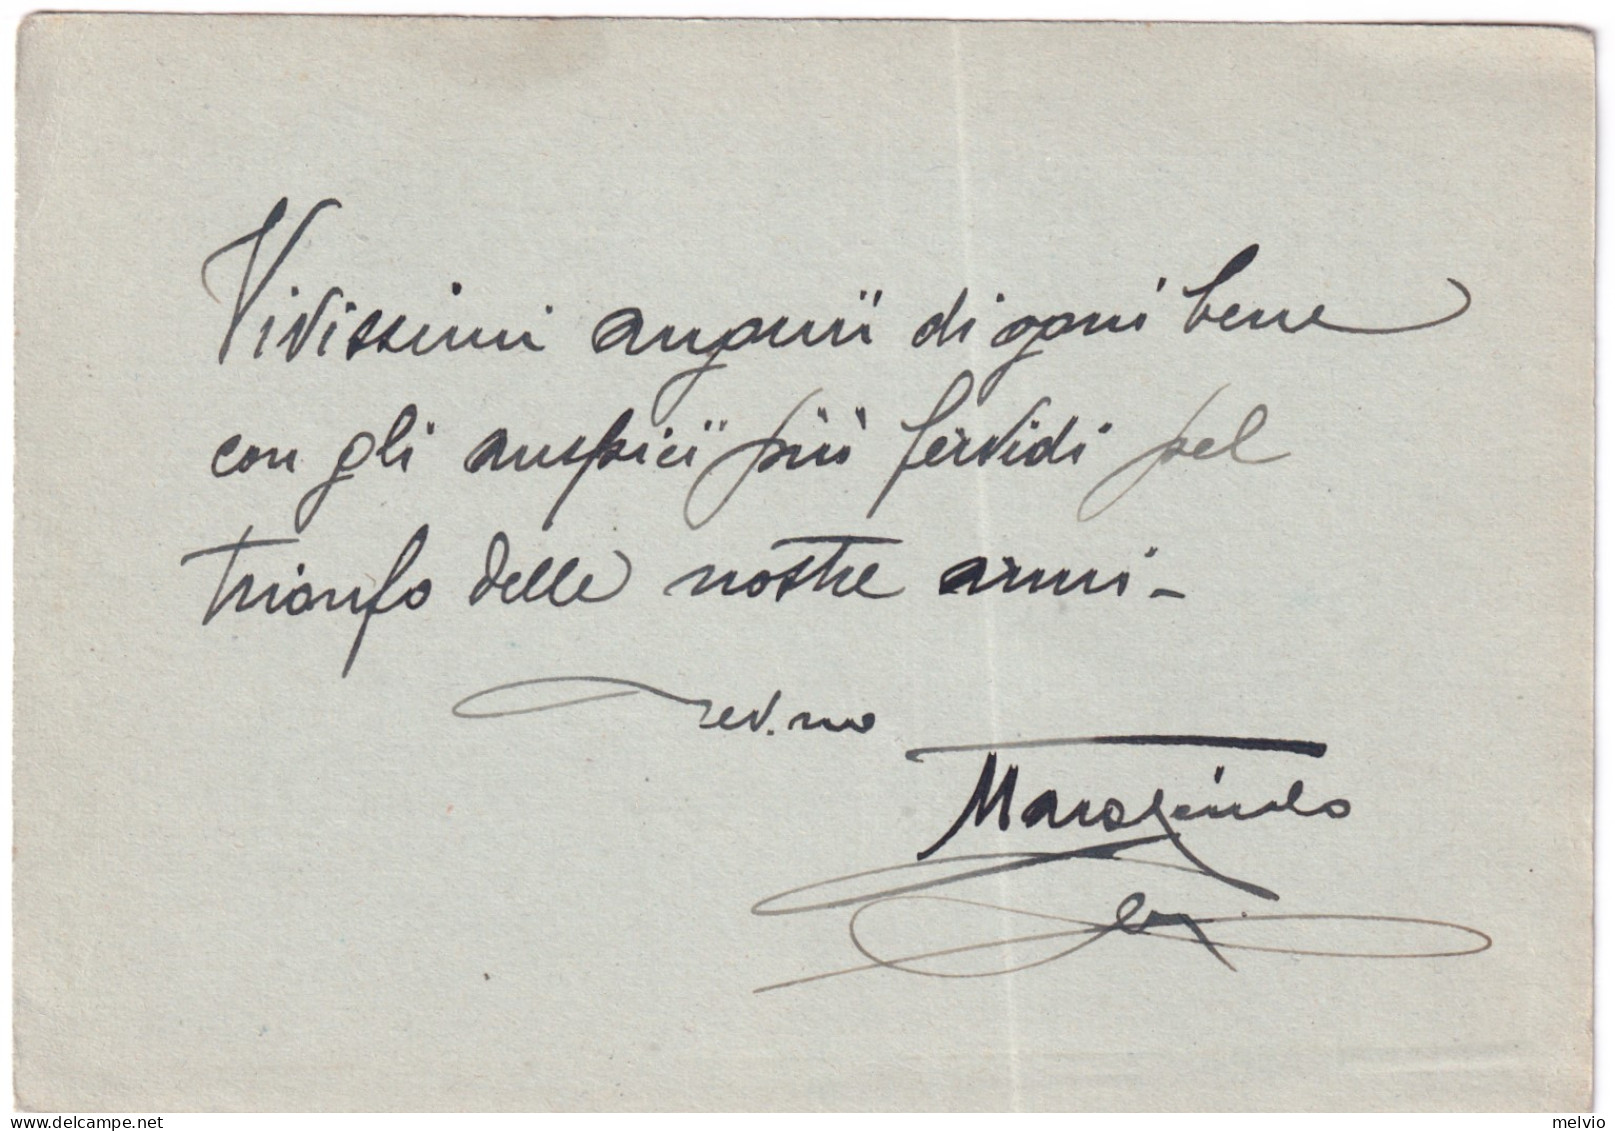 Vivissimi augurii di ogni bene
con gli auspicii più fervidi pel
trionfo delle nostre armi -
Dev.mo
the.delcampe.net
melvio